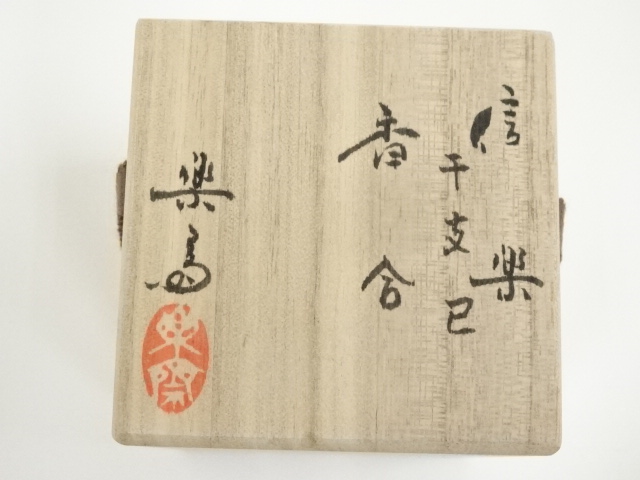 信楽
干支巳
香合
楽斎
楽斎